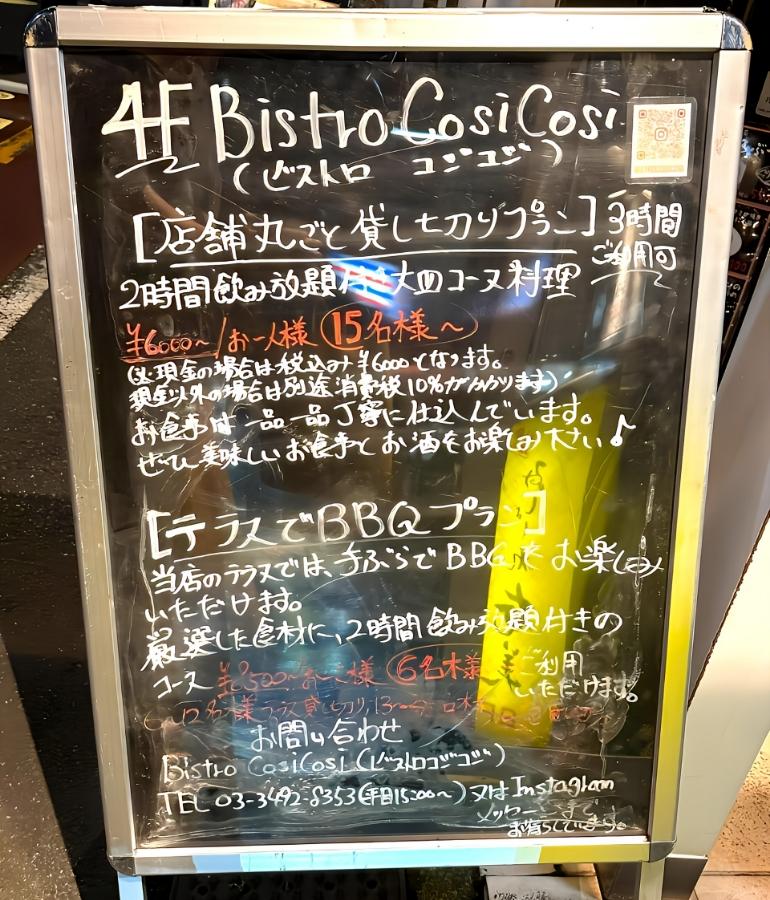 4F Bistro CosiCosi
(ビストロ コジコジ)
[店舗丸ごと貸し切りプラン] 3時間
ご利用可
2時間飲み放題付き大皿コース料理
¥6000〜/お一人様 15名様〜
(※現金の場合は税込み¥6000となります。
現金以外の場合は別途消費税10%がかかります)
お食事は一品一品丁寧に仕込んでいます。
ぜひ美味しいお食事とお酒をお楽しみ下さい♪
[テラスでBBQプラン]
当店のテラスでは、手ぶらでBBQをお楽しみ
いただけます。
厳選した食材に、2時間飲み放題付きの
コース お一人様 6名様 ご利用
いただけます。
名様 テラス貸し切り
お問い合わせ
Bistro CosiCosi (ビストロコジコジ)
TEL 03-3492-8353(平日15:00〜)又はInstagram
メッセージまで
お待ちしています。